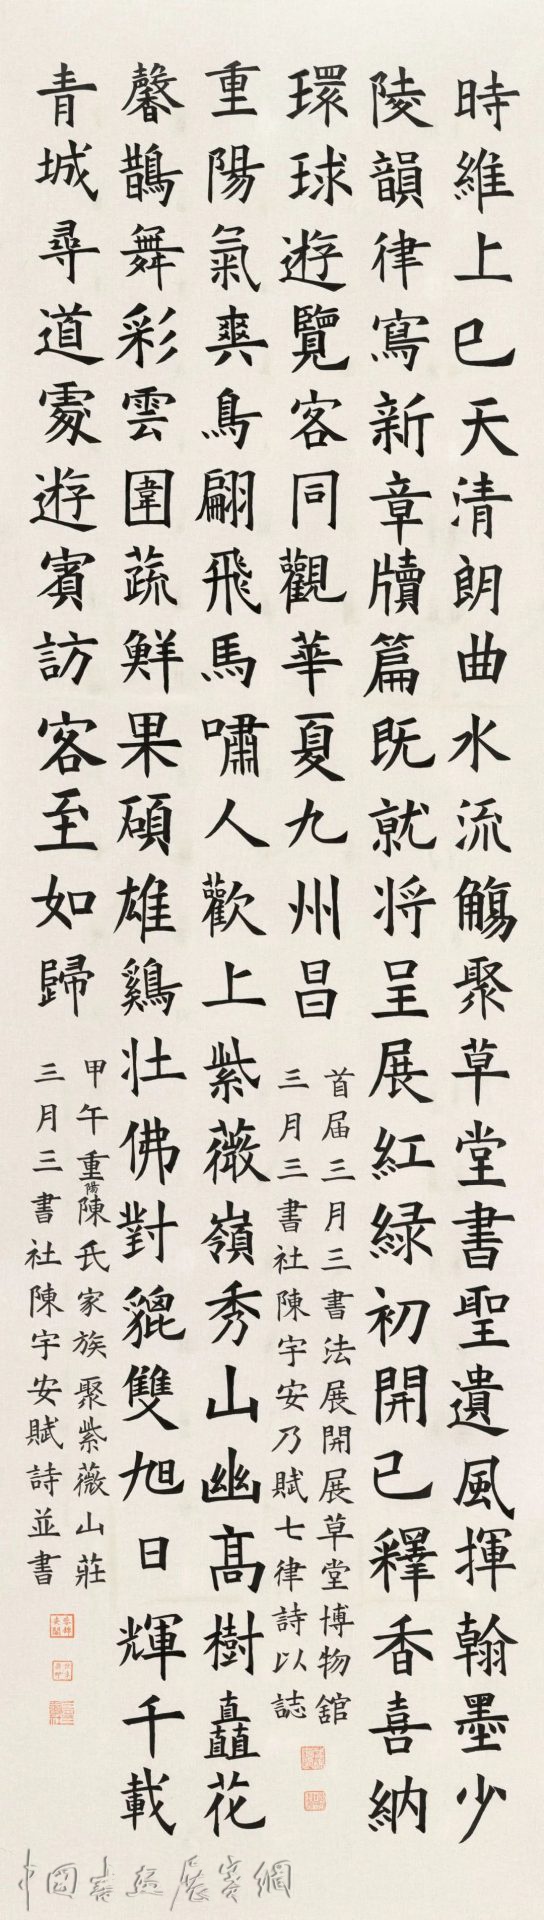 時維上巳天清朗曲水流觴聚草堂書聖遺風揮翰墨少
陵韻律寫新章牘篇既就将呈展紅緑初開已釋香喜納
環球遊覽客同觀華夏九州昌
首届三月三書法展開展草堂博物舘
三月三書社陳宇安乃賦七律詩以誌
重陽氣爽鳥翩飛馬嘯人歡上紫薇嶺秀山幽高樹矗花
馨鵲舞彩雲圍蔬鮮果碩雄鷄壯佛對貔雙旭日輝千載
青城尋道處遊賓訪客至如歸
甲午重陽陳氏家族聚紫薇山莊
三月三書社陳宇安賦詩並書
中國書畫展賽網